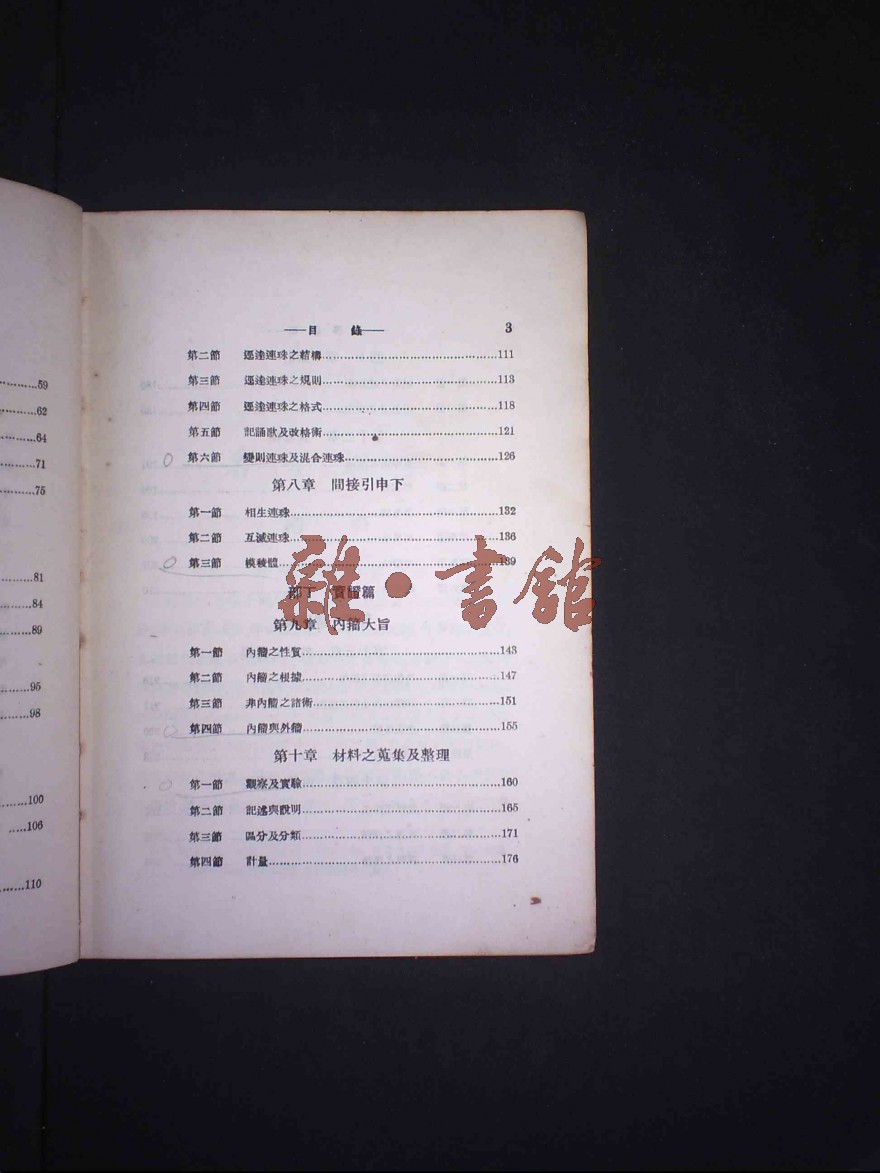 59
62
64
71
75
81
84
89
95
98
100
106
110
——目 錄—— 3
第二節 逕達連珠之結構 111
第三節 逕達連珠之規則 113
第四節 逕達連珠之格式 118
第五節 記誦歌及改格術 121
第六節 變則連珠及混合連珠 126
第八章 間接引申下
第一節 相生連珠 132
第二節 互滅連珠 136
第三節 模棱體 139
部丁 實證篇
第九章 內籀大旨
第一節 內籀之性質 143
第二節 內籀之根據 147
第三節 非內籀之諸術 151
第四節 內籀與外籀 155
第十章 材料之蒐集及整理
第一節 觀察及實驗 160
第二節 記述與說明 165
第三節 區分及分類 171
第四節 計量 176
雜·書館